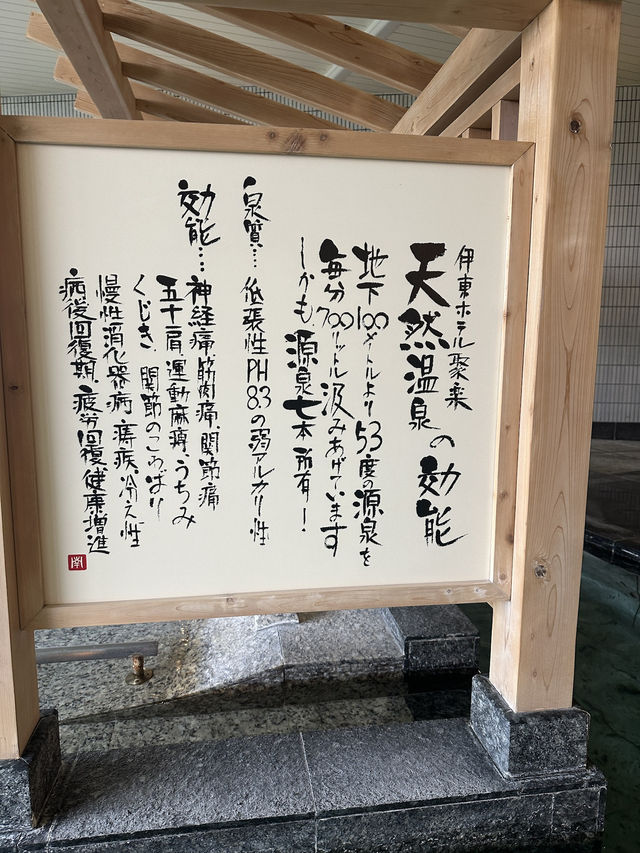 伊東ホテル聚楽
天然温泉の効能
地下100メートルより53度の源泉を
毎分700リットル汲みあげています
しかも源泉七本所有!
泉質…低張性PH8.3の弱アルカリ性
効能…神経痛、筋肉痛、関節痛
五十肩、運動麻痺、うちみ
くじき、関節のこわばり
慢性消化器病、痔疾、冷え性
病後回復期、疲労回復、健康増進